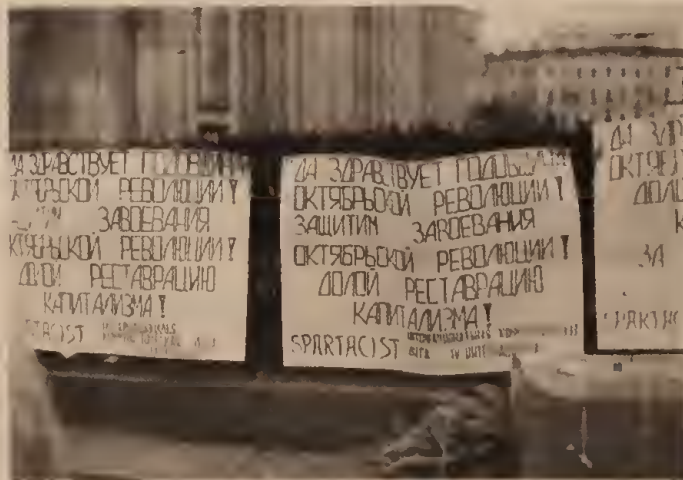 ДА ЗДРАВСТВУЕТ ГОДОВЩИНА
ОКТЯБРЬСКОЙ РЕВОЛЮЦИИ!
ЗАВОЕВАНИЯ
ОКТЯБРЬСКОЙ РЕВОЛЮЦИИ!
ДОЛОЙ РЕСТАВРАЦИЮ
КАПИТАЛИЗМА!
ДА ЗДРАВСТВУЕТ ГОДОВЩИНА
ОКТЯБРЬСКОЙ РЕВОЛЮЦИИ!
ЗАЩИТИМ ЗАВОЕВАНИЯ
ОКТЯБРЬСКОЙ РЕВОЛЮЦИИ!
ДОЛОЙ РЕСТАВРАЦИЮ
КАПИТАЛИЗМА!
SPARTACIST
ДА ЗДР
ОКТЯБ
ДОЛО
К
ЗА
SPARTAC